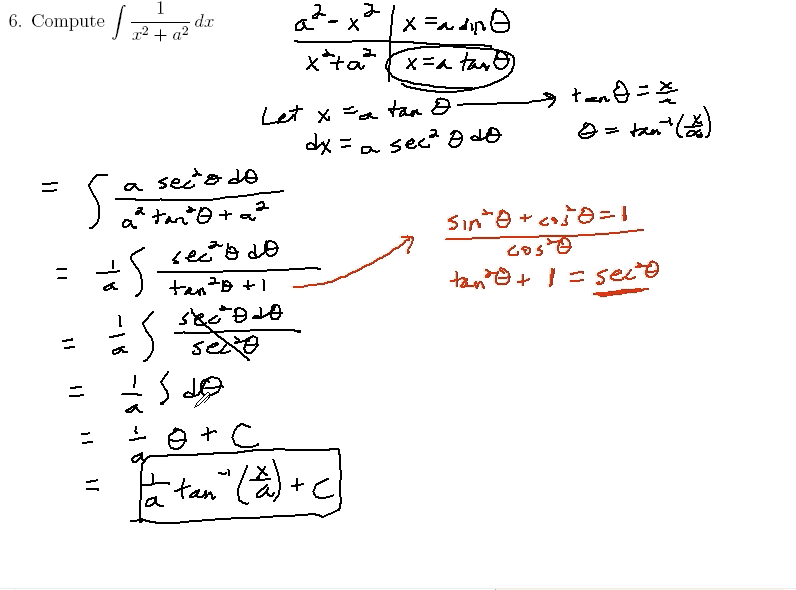 6. Compute ∫ 1/(x² + a²) dx
a² - x² | x = a sin θ
x² + a² | x = a tan θ
Let x = a tan θ → tan θ = x/a
dx = a sec² θ dθ θ = tan⁻¹(x/a)
= ∫ a sec² θ dθ / (a² tan² θ + a²)
sin² θ + cos² θ = 1
cos² θ
= 1/a ∫ sec² θ dθ / (tan² θ + 1)
tan² θ + 1 = sec² θ
= 1/a ∫ sec² θ dθ / sec² θ
= 1/a ∫ dθ
= 1/a θ + C
= 1/a tan⁻¹(x/a) + C